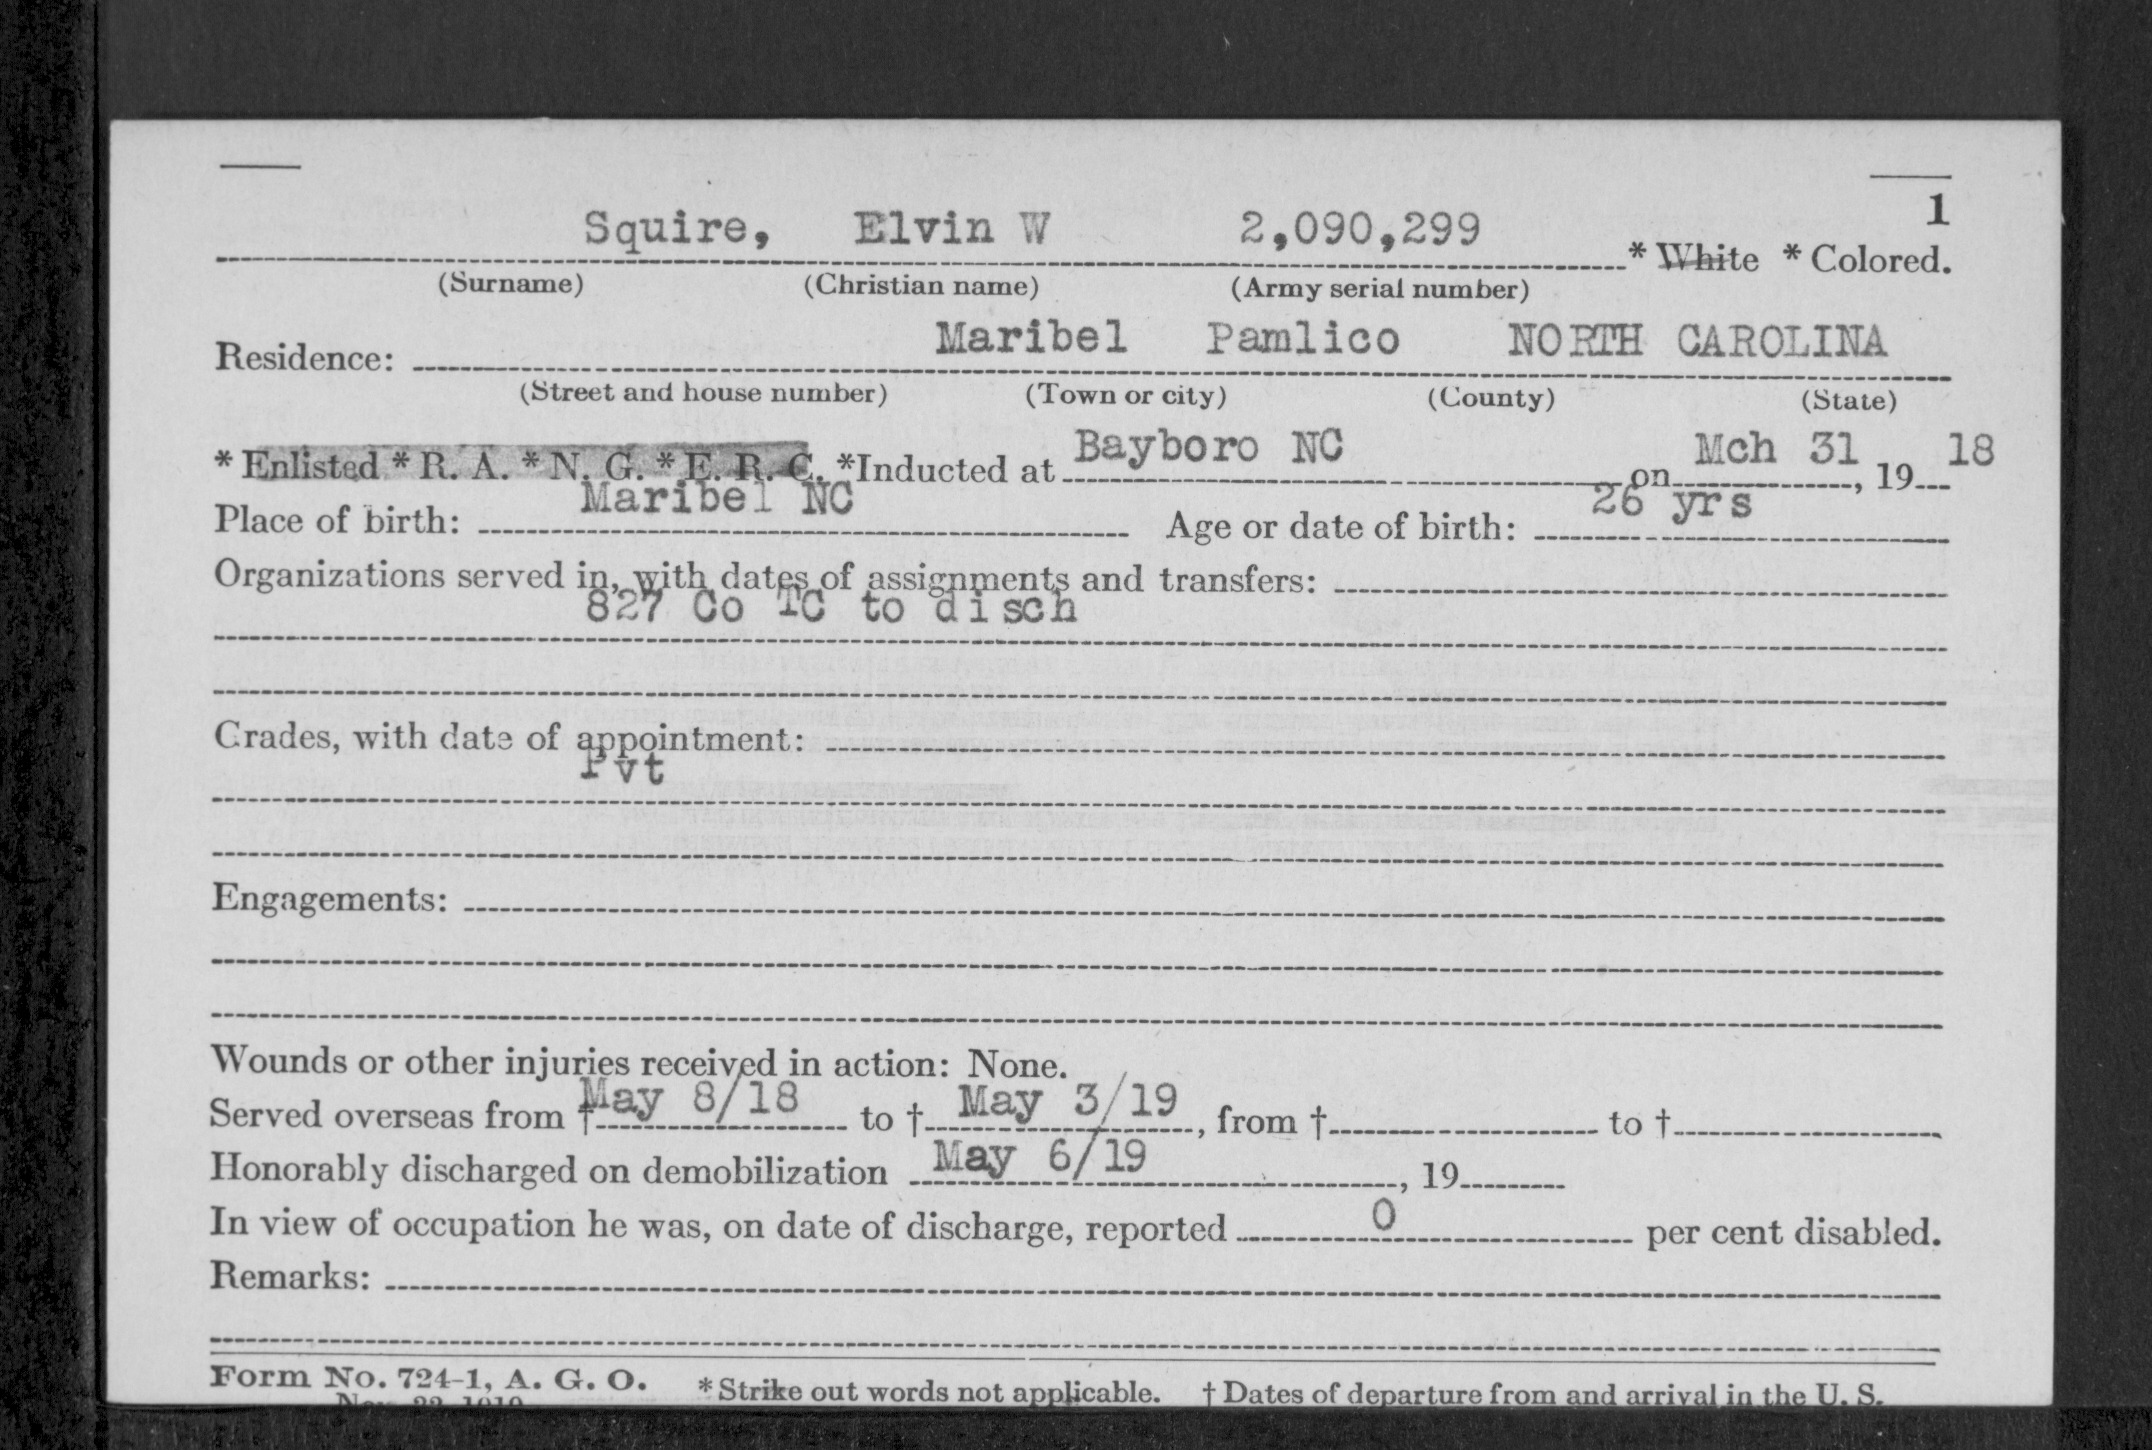 1
Squire, Elvin W 2,090,299 * White * Colored.
(Surname) (Christian name) (Army serial number)
Residence: Maribel Pamlico NORTH CAROLINA
(Street and house number) (Town or city) (County) (State)
* Enlisted * R. A. * N. G. * E. R. C. *Inducted at Bayboro NC on Mch 31, 19 18
Place of birth: Maribel NC Age or date of birth: 26 yrs
Organizations served in, with dates of assignments and transfers:
827 Co TC to disch
Grades, with date of appointment:
Pvt
Engagements:
Wounds or other injuries received in action: None.
Served overseas from † May 8/18 to † May 3/19, from † to †
Honorably discharged on demobilization May 6/19, 19
In view of occupation he was, on date of discharge, reported 0 per cent disabled.
Remarks:
Form No. 724-1, A. G. O. * Strike out words not applicable. † Dates of departure from and arrival in the U. S.